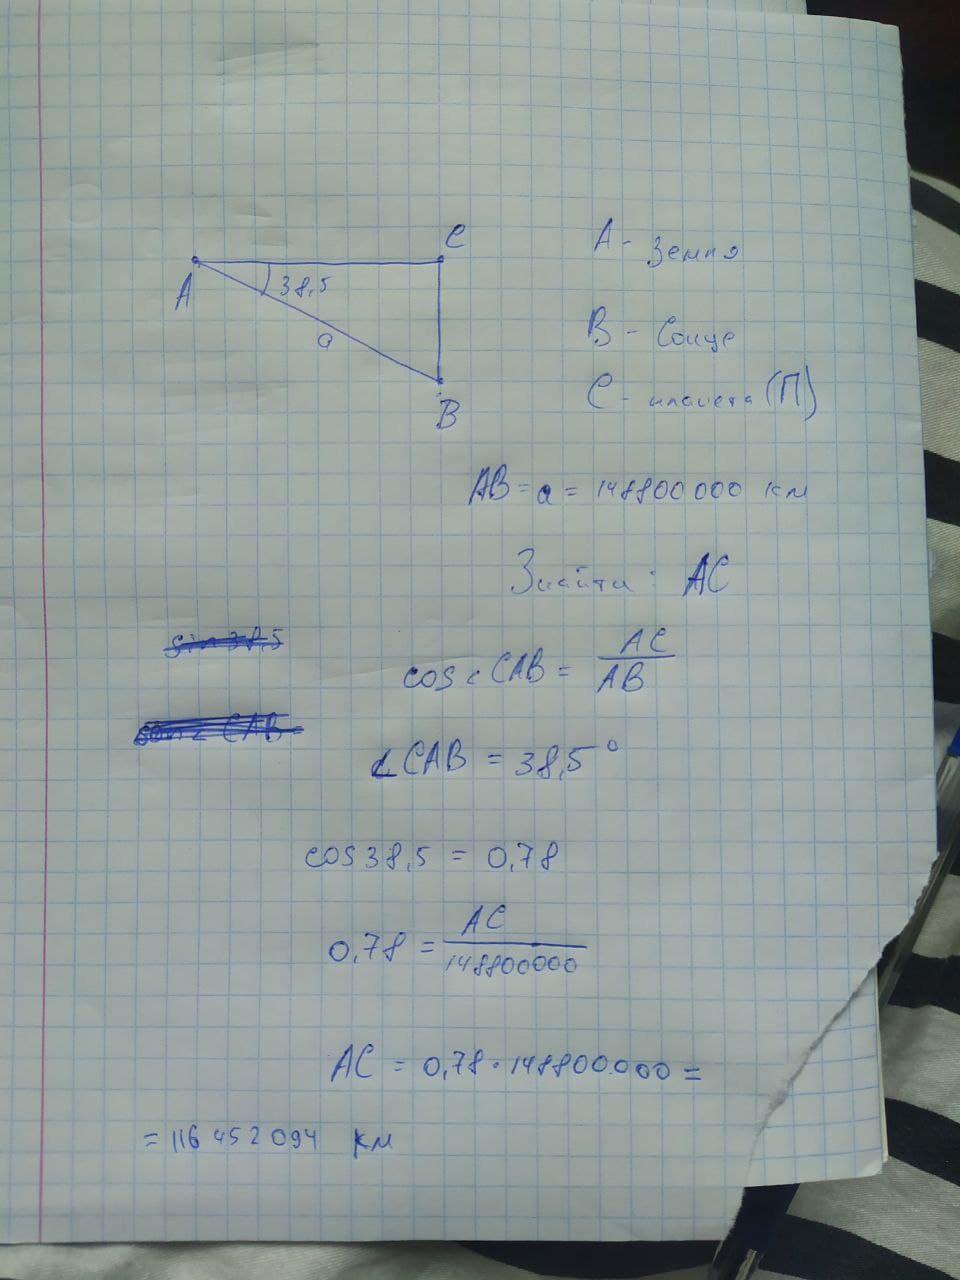 C
A - Земля
A
38,5
a
B - Сонце
C - планета (П)
B
AB = a = 148800000 км
Знайти: AC
sin 38,5
cos ∠ CAB = AC / AB
sin ∠ CAB =
∠ CAB = 38,5°
cos 38,5 = 0,78
0,78 = AC / 148800000
AC = 0,78 · 148800000 =
= 116 452 094 км